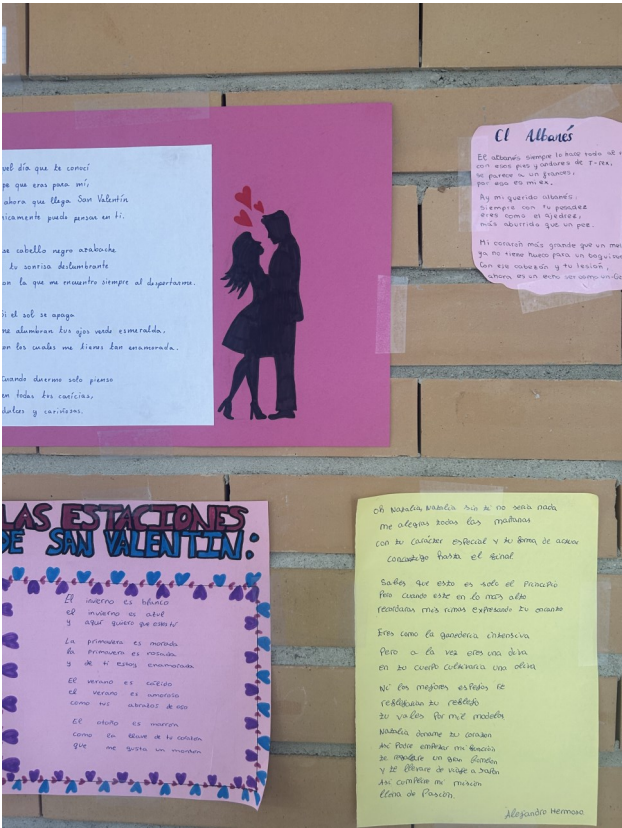 uel día que te conocí
que eras para mí,
ahora que llega San Valentín
nicamente puedo pensar en ti.
se cabello negro azabache
tu sonrisa deslumbrante
on la que me encuentro siempre al despertarme.
si el sol se apaga
me alumbran tus ojos verde esmeralda.
on los cuales me tienes tan enamorada.
Cuando duermo solo pienso
en todas tus caricias,
dulces y cariñosas.
El Albanés
El albanés siempre lo hace todo al
con esos pies y andares de T-rex,
se parece a un francés,
por eso es mi ex.
Ay mi querido albanés,
siempre con tu pesadez
eres como el ajedrez,
más aburrido que un pez.
Mi corazón más grande que un
ya no tiene hueco para un
Con ese cabezón y tu lesión,
ahora es un
LAS ESTACIONES
DE SAN VALENTIN:
El invierno es blanco
el invierno es azul
y aquí quiero que estés tú
La primavera es morada
la primavera es rosada
y de ti estoy enamorada
El verano es cálido
el verano es amoroso
como tus abrazos de oso
El otoño es marrón
como la llave de tu corazón
que me gusta un montón
Oh Natalia, Natalia sin ti no sería nada
me alegras todas las mañanas
con tu carácter especial y tu forma de actuar
contigo hasta el final
Sabes que esto es solo el principio
Pero cuando esté en lo más alto
recordaras mis rimas expresando tu encanto
Eres como la guardería intensiva
Pero a la vez eres una diva
en tu cuerpo cultivaría una oliva
Ni los mejores espejos te
reflejarían tu reflejo
tu vales por mil modelos
Natalia dename tu corazón
Así Podré empezar mi función
te regalare un gran bombon
y te llevare de viaje a Japon
Así cumpliré mi misión
llena de Pasión.
Alejandro Hermoso